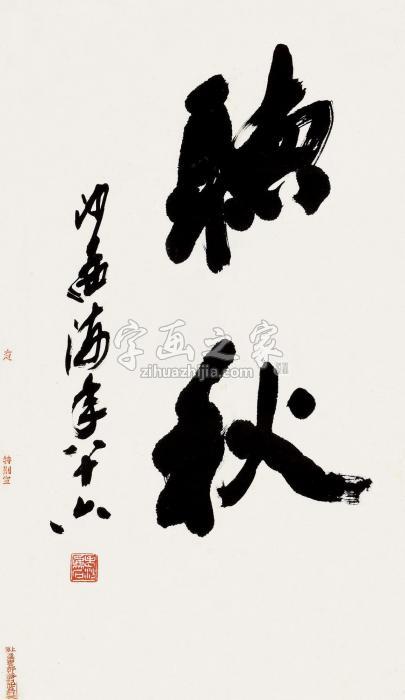 聽秋
沙孟海年八十六
字画之家
zihuazhijia.com
特别宣